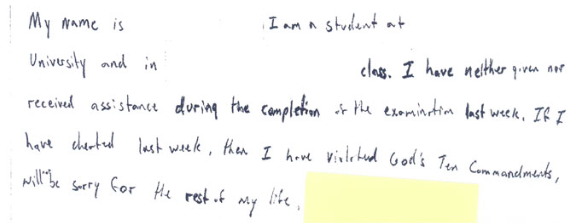 My name is I am a student at
University and in class. I have neither given nor
received assistance during the completion of the examination last week. If I
have cheated last week, then I have violated God's Ten Commandments,
will be sorry for the rest of my life.